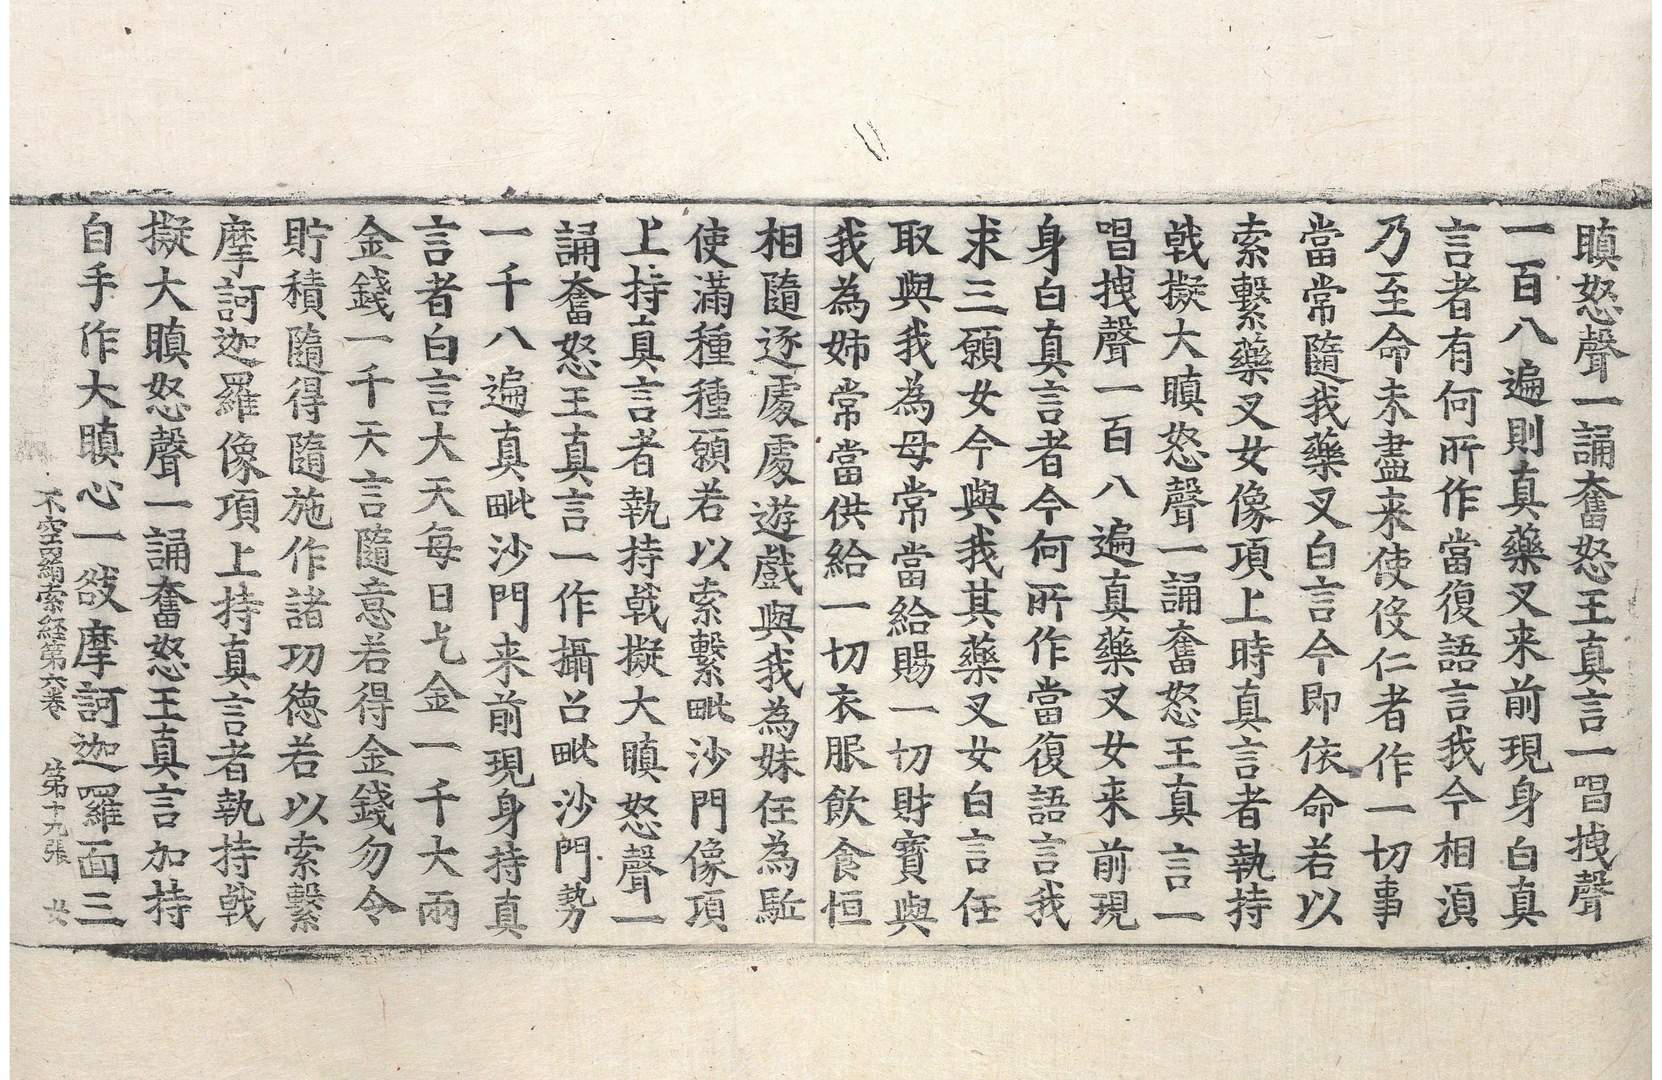 瞋怒聲一誦奮怒王真言一唱拽聲
一百八遍則真藥叉来前現身白真
言者有何所作當復語言我今相湏
乃至命未盡来使伇仁者作一切事
當常隨我藥叉白言今即依命若以
索繫藥叉女像項上時真言者執持
戟擬大瞋怒聲一誦奮怒王真言一
唱拽聲一百八遍真藥叉女来前現
身白真言者今何所作當復語言我
求三願女今與我其藥叉女白言任
取與我為母常當給賜一切財寶與
我為姉常當供給一切衣服飲食恒
相隨逐處處遊戲與我為妹任為駈
使滿種種願若以索繫毗沙門像項
上持真言者執持戟擬大瞋怒聲一
誦奮怒王真言一作攝召毗沙門勢
一千八遍真毗沙門来前現身持真
言者白言大天每日乞金一千大兩
金錢一千天言隨意若得金錢勿令
貯積隨得隨施作諸功徳若以索繫
摩訶迦羅像項上持真言者執持戟
擬大瞋怒聲一誦奮怒王真言加持
自手作大瞋心一敆摩訶迦羅面三
不空罥索経第六卷 第十九張 女